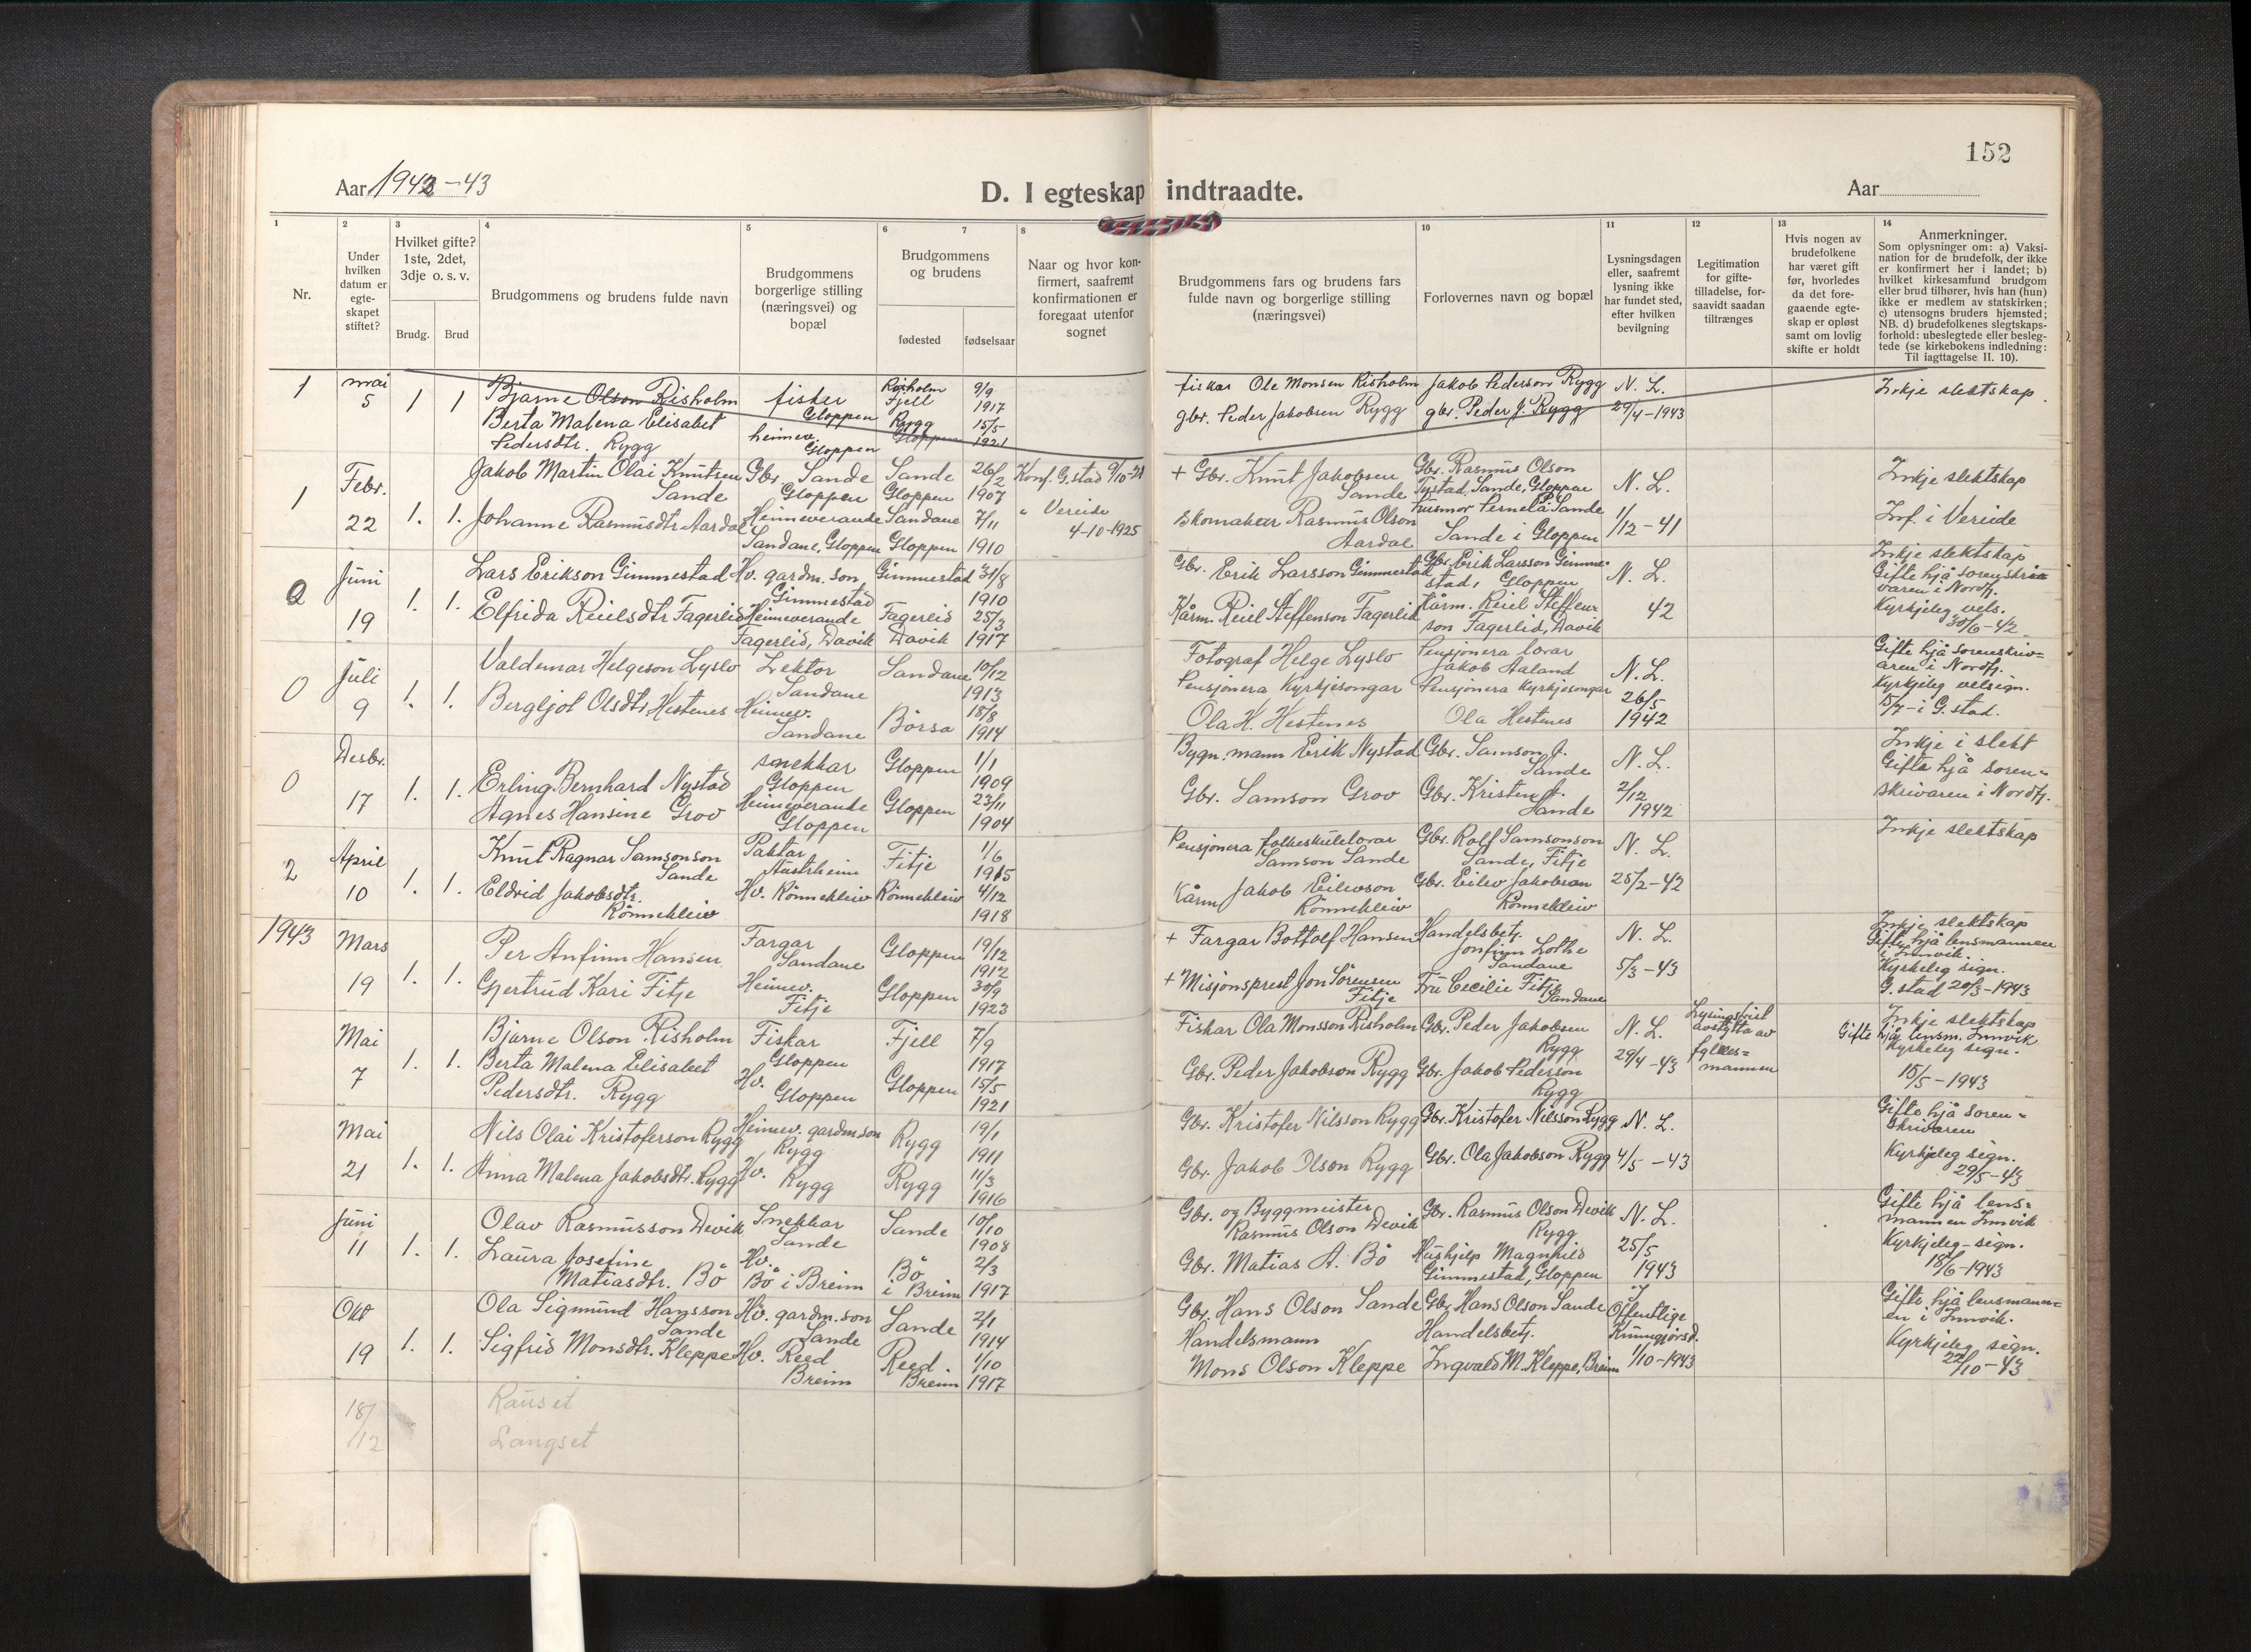 152
Aar 1942-43
D. I egteskap indtraadte.
Aar
1
2
3
4
5
6
7
8
10
11
12
13
14
Nr.
Under
hvilken
datum er
egte-
skapet
stiftet?
Hvilket gifte?
1ste, 2det,
3dje o. s. v.
Brudg.
Brud
Brudgommens og brudens fulde navn
Brudgommens
borgerlige stilling
(næringsvei) og
bopæl
Brudgommens
og brudens
fødested
fødselsaar
Naar og hvor kon-
firmert, saafremt
konfirmationen er
foregaat utenfor
sognet
Brudgommens fars og brudens fars
fulde navn og borgerlige stilling
(næringsvei)
Forlovernes navn og bopæl
Lysningsdagen
eller, saafremt
lysning ikke
har fundet sted,
efter hvilken
bevilgning
Legitimation
for gifte-
tilladelse, for-
saavidt saadan
tiltrænges
Hvis nogen av
brudefolkene
har været gift
før, hvorledes
da det fore-
gaaende egte-
skap er opløst
samt om lovlig
skifte er holdt
Anmerkninger.
Som oplysninger om: a) Vaksi-
nation for de brudefolk, der ikke
er konfirmert her i landet; b)
hvilket kirkesamfund brudgom
eller brud tilhører, hvis han (hun)
ikke er medlem av statskirken;
c) utensogns bruders hjemsted;
NB. d) brudefolkenes slegtskaps-
forhold: ubeslegtede eller besleg-
tede (se kirkebokens indledning:
Til iagttagelse II. 10).
1
mai
5
1
1
Bjarne Olson Risholm
Berta Malena Elisabet
Pedersdtr. Rygg
fisker
Gloppen
heimev.
Gloppen
Risholm
Fjell
Rygg
Gloppen
9/9
1917
15/5
1921
fiskar Ole Monsen Risholm
gbr. Peder Jakobsen Rygg
Jakob Pederson Rygg
gbr. Peder J. Rygg
N. L.
29/4-1943
Inkje slektskap.
1
Febr.
22
1.
1.
Jakob Martin Olai Knutsen
Sande
Johanne Rasmusdtr Aardal
Gbr. Sande
Gloppen
Heimeverande
Sandane, Gloppen
Sande
Gloppen
Sandane
Gloppen
26/2
1907
7/11
1910
Konf. G.stad 9/10-21
" Vereide
4-10-1925
+ Gbr. Knut Jakobsen
Sande
Skomaker Rasmus Olson
Aardal
Gbr. Rasmus Olson
Tystad, Sande, Gloppen
husmor Pernela Sande
Sande i Gloppen
N. L.
1/12-41
Inkje slektskap
Inf. i Vereide
2
Juni
19
1.
1.
Lars Erikson Gimmestad
Elfrida Reielsdtr Fagerlid
Hv. gardm. son
Gimmestad
Heimeverande
Fagerlid, Davik
Gimmestad
Fagerlid
Davik
31/8
1910
25/3
1917
Gbr. Erik Larsson Gimmestad
Kårm. Reiel Steffenson Fagerlid
Gbr. Erik Larsson Gimme-
stad, Gloppen
Kårm. Reiel Steffen-
son Fagerlid, Davik
N. L.
42
Inkje slektskap
Gifte hjå sorenskri-
varen i Nordfj.
Kyrkjeleg vels.
30/6-42
0
Juli
9
1.
1.
Valdemar Helgeson Lyslo
Bergljot Olsdtr. Hestenes
Lektor
Sandane
Heimev.
Sandane
Sandane
Börsa
10/12
1913
18/8
1914
Fotograf Helge Lyslo
Pensjonera Kyrkjesongar
Ola H. Hestenes
Pensjonera lærar
Jakob Aaland
Pensjonera Kyrkjesongar
Ola Hestenes
N. L.
26/5
1942
Gifte hjå sorenskriv=
aren i Nordfj.
Kyrkjeleg velsign.
15/7- i G.stad.
0
Desbr.
17
1.
1.
Erling Bernhard Nystad
Agnes Hansine Grov
snekkar
Gloppen
Heimeverande
Gloppen
Gloppen
Gloppen
1/1
1909
23/11
1904
Bygn. mann Erik Nystad
Gbr. Samson Grov
Gbr. Samson J.
Sande
Gbr. Kristen J.
Sande
N. L.
2/12
1942
Inkje i slekt
Gifte hjå soren=
skrivaren i Nordfj.
2
April
10
1.
1.
Knut Ragnar Samsonson
Sande
Eldrid Jakobsdtr.
Rönnekleiv
Paktar
Austrheim
Hv. Rönnekleiv
Fitje
Rönnekleiv
1/6
1915
4/12
1918
Pensjonera folkeskulelærar
Samson Sande
Kårm Jakob Eilevson
Rönnekleiv
Gbr. Rolf Samsonson
Sande, Fitje
Gbr. Eilev Jakobson
Rönnekleiv
N. L.
25/2-42
Inkje slektskap
1943
Mars
19
1.
1.
Per Anfinn Hansen
Gjertrud Kari Fitje
Fargar
Sandane
Heimev.
Fitje
Gloppen
Gloppen
19/12
1912
30/9
1923
+ Fargar Bottolf Hansen
+ Misjonsprest Jon Sörensen
Fitje
Handelsbetj.
Jonfinn Lothe
Sandane
Fru Cecilie Fitje
Sandane
N. L.
5/3-43
Inkje slektskap
Gifte hjå lensmannen
i Innvik.
Kyrkeleg sign.
G.stad 20/3-1943
Mai
7
1.
1.
Bjarne Olson Risholm
Berta Malena Elisabet
Pedersdtr. Rygg
Fiskar
Gloppen
Hv.
Gloppen
Fjell
Gloppen
7/9
1917
15/5
1921
Fiskar Ola Monsson Risholm
Gbr. Peder Jakobson Rygg
Gbr. Peder Jakobsen
Rygg
Gbr. Jakob Pederson
Rygg
N. L.
29/4-43
Lysingstiel
avstytta av
fylkes=
mannen
Inkje slektskap
Gifte hjå lensm. Innvik
Kyrkeleg sign.
15/5-1943
Mai
21
1.
1.
Nils Olai Kristoferson Rygg
Anna Malena Jakobsdtr. Rygg
Heimev. gardm.son
Rygg
Hv. Rygg
Rygg
Rygg
19/1
1911
11/3
1916
Gbr. Kristofer Nilsson Rygg
Gbr. Jakob Olson Rygg
Gbr. Kristofer Nilsson Rygg
Gbr. Ola Jakobson Rygg
N. L.
4/5-43
Gifte hjå soren=
skrivaren
Kyrkjeleg sign.
29/5-43
Juni
11
1.
1.
Olav Rasmusson Devik
Laura Josefine
Matiasdtr. Bö
Snekkar
Sande
Hv.
Bö i Breim
Sande
Bö
i Breim
10/10
1908
2/3
1917
Gbr. og Byggmeister
Rasmus Olson Devik
Gbr. Matias A. Bö
Gbr. Rasmus Olson Devik
Rygg
Hushjelp Magnhild
Gimmestad, Gloppen
N. L.
25/5
1943
Gifte hjå lens=
mannen Innvik
Kyrkjeleg-sign.
18/6-1943
Okt
19
1.
1.
Ola Sigmund Hansson
Sande
Sigfrid Monsdtr. Kleppe
Hv. gardm.son
Sande
Hv. Reed
Breim
Sande
Reed.
Breim
2/1
1914
1/10
1917
Gbr. Hans Olson Sande
Handelsmann
Mons Olson Kleppe
Gbr. Hans Olson Sande
Handelsbetj.
Ingvald M. Kleppe, Breim
Offentlige
Kunngjörsd.
1/10-1943
Gifte hjå lensmann=
en i Innvik.
Kyrkjeleg sign.
22/10-43
18/12
Rauset
Langset